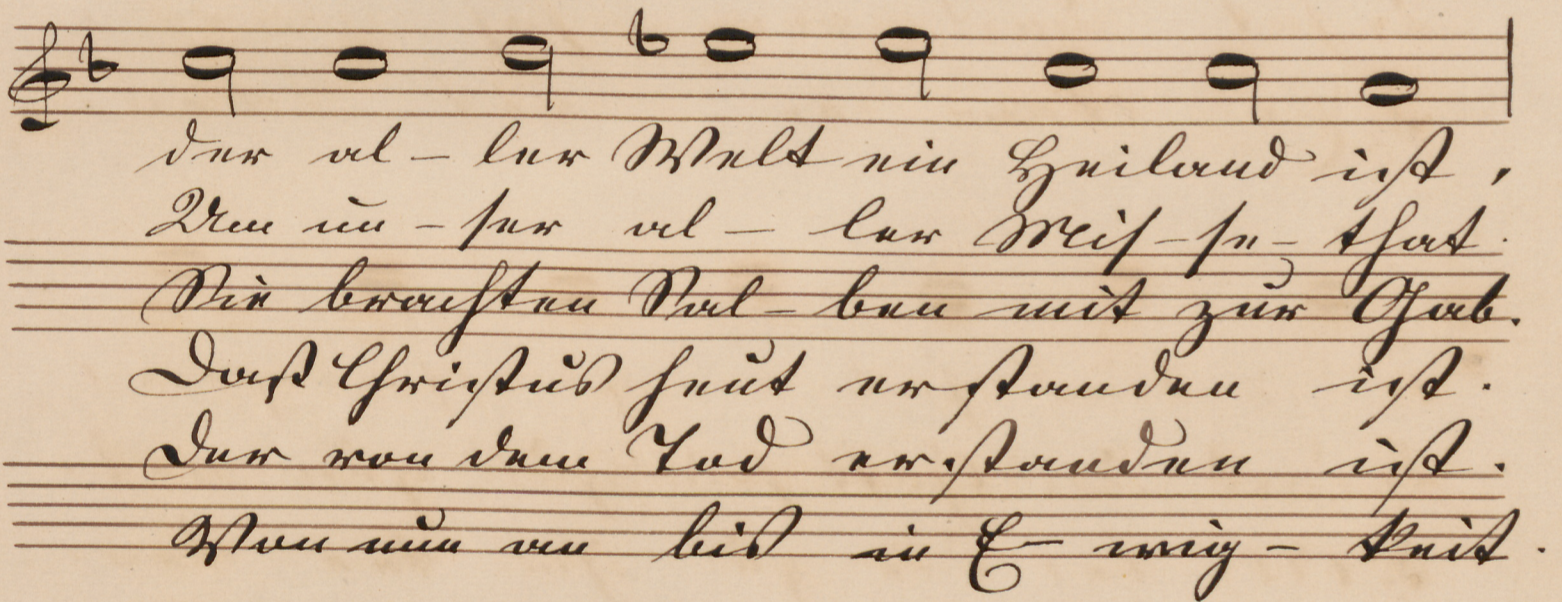 der al- ler Welt ein Heiland ist,
Um un- ser al- ler Mis- se- that.
Sie brachten Sal- ben mit zur Gab.
Daß Christus heut erstanden ist.
Der von dem Tod erstanden ist.
Von nun an bis in E- wig- keit.